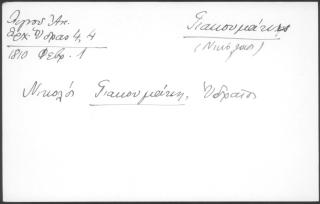 Λιγνοῦ Ἀντ.
Ἀρχ. Ὕδρας 4, 4
1810 Φεβρ. 1
Γιακουμάκης
(Νικόλαος)
Νικολὸς Γιακουμάκη, Ὑδραῖος